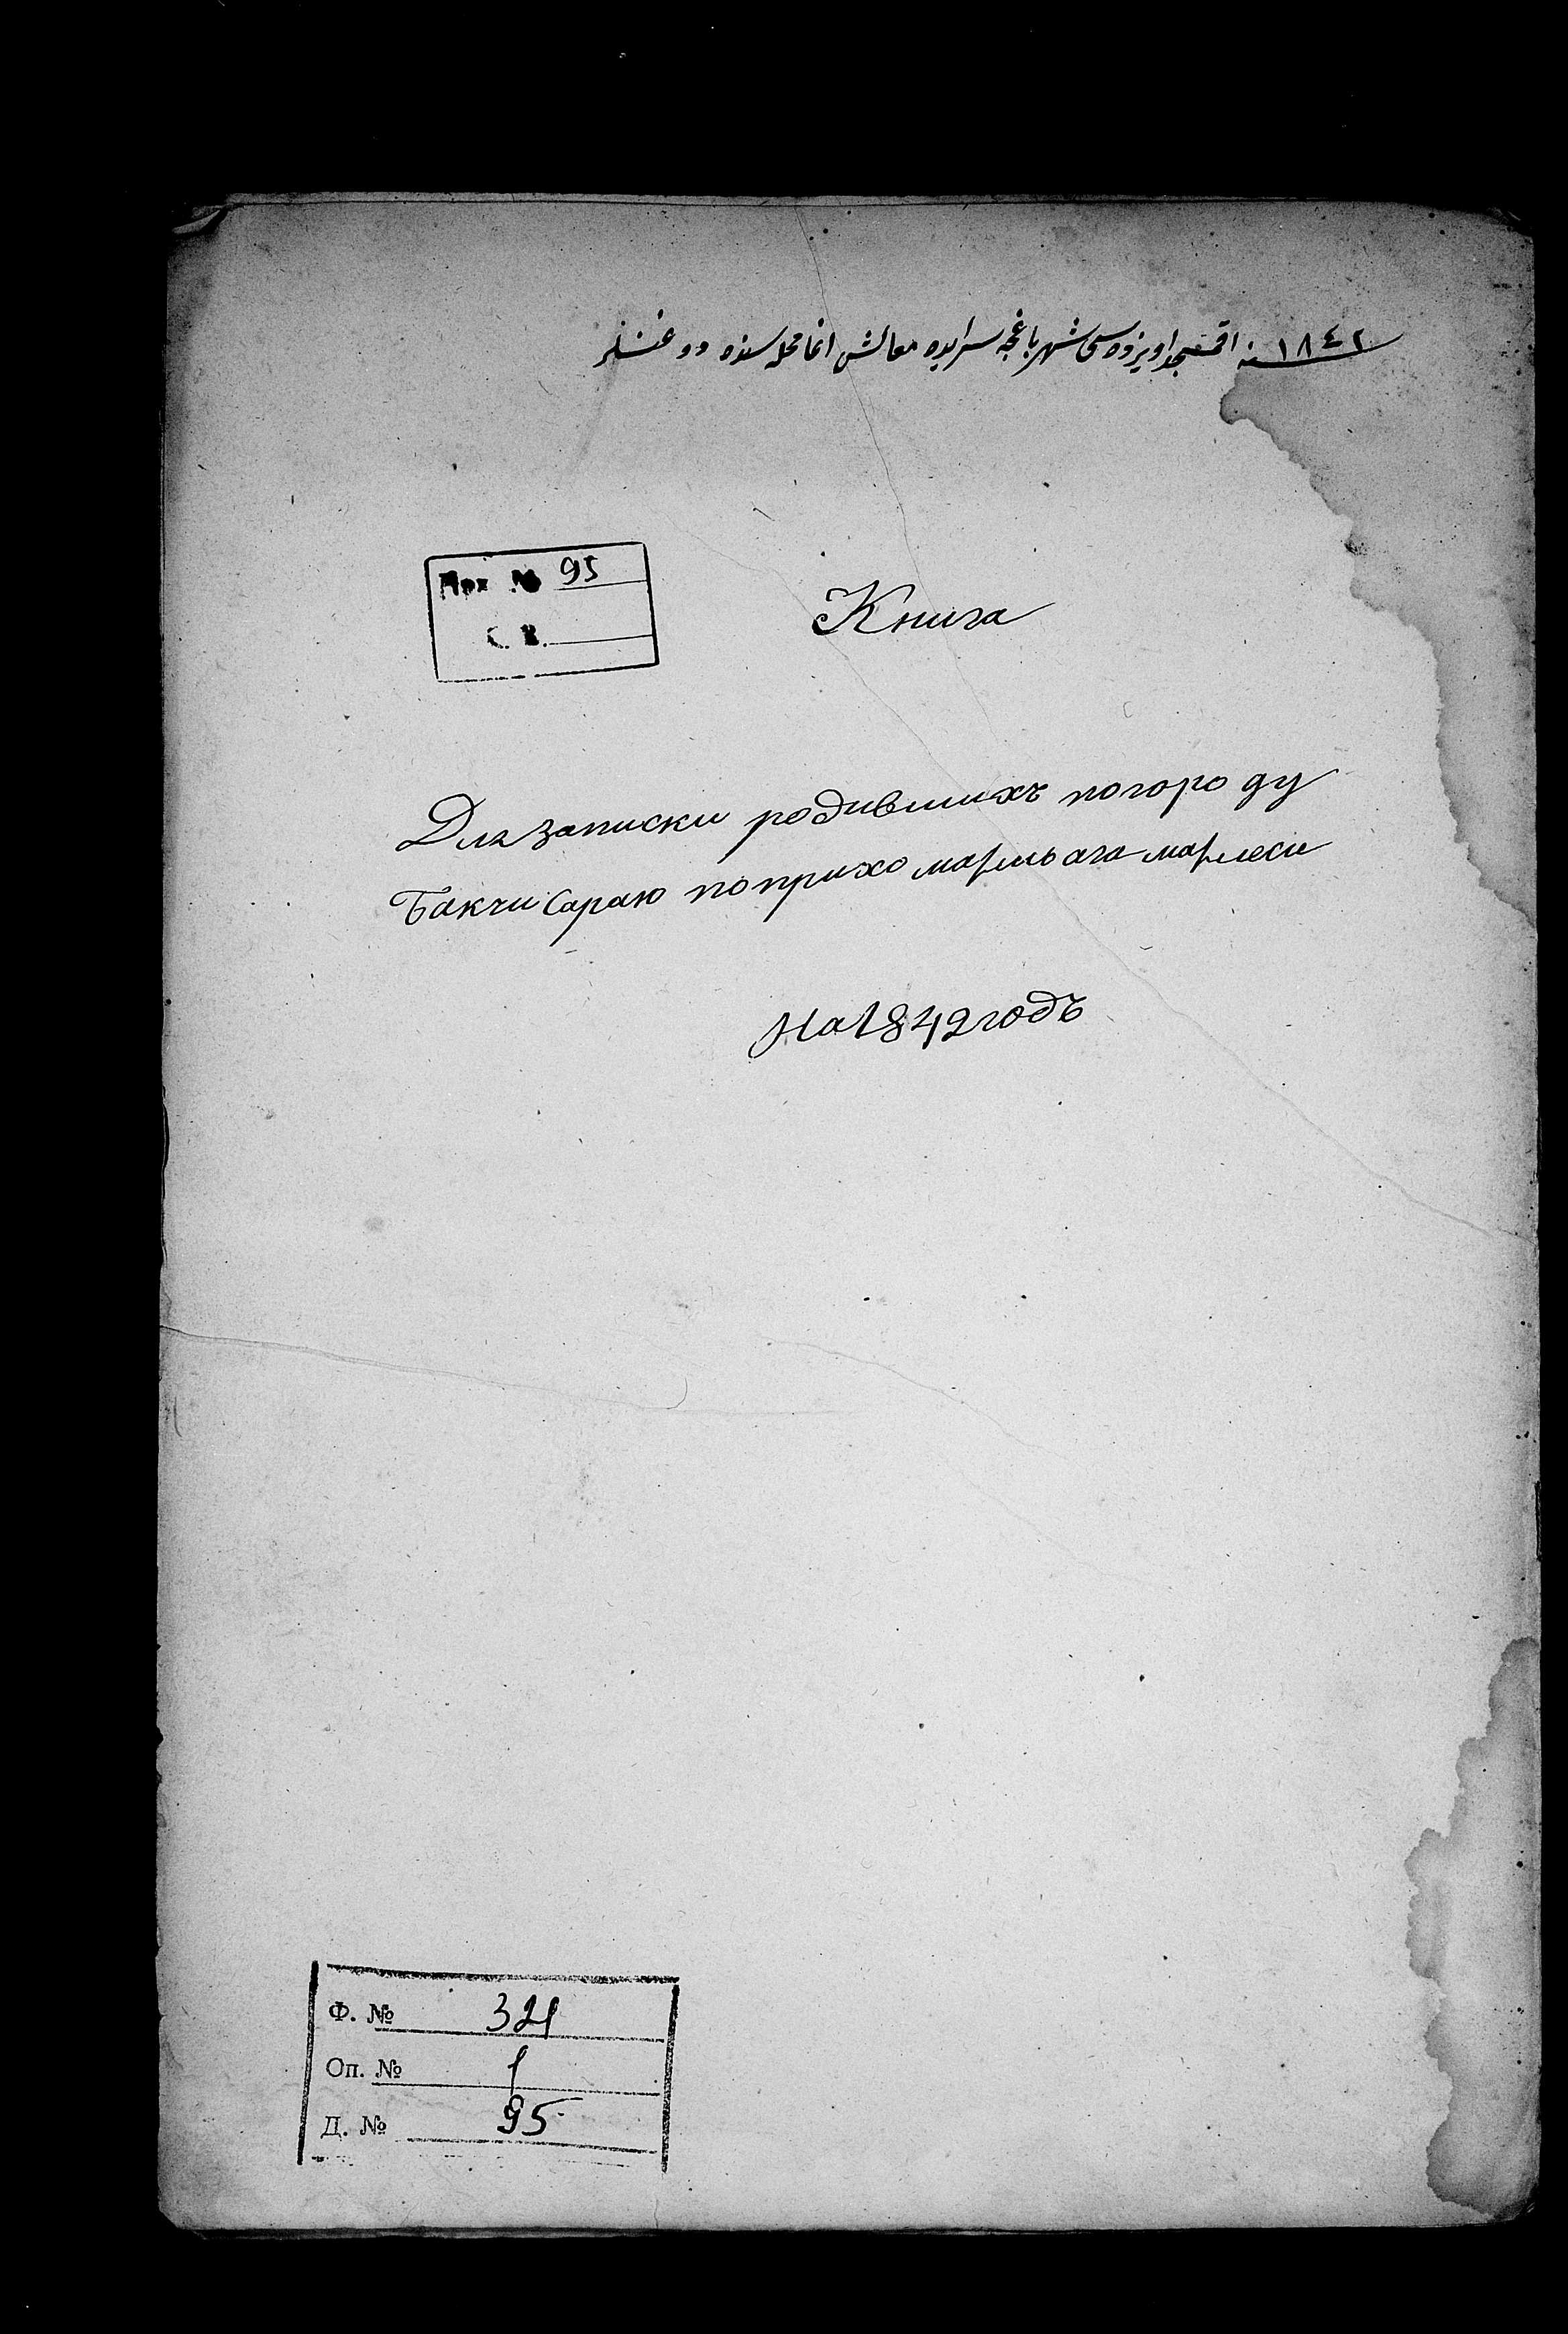 ١٨٤٢ سنه اقمسجد اويزده سی شهر باغچه سرايده معالش اغا محله سنده دوغنلر
Арх № 95
С. В.
Книга
Для записки родившихъ погороду
Бакчи Сараю поприхо
На 1842 годъ
Ф. № 321
Оп. № 1
Д. № 95